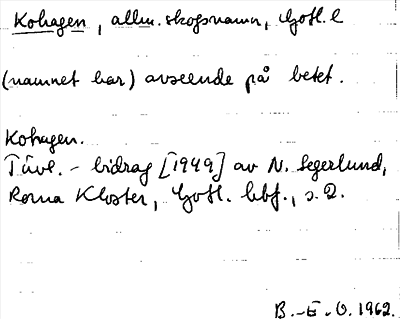 Kohagen, allm. skogsnamn, Gotl. l
(namnet har) avseende på betet.
Kohagen.
Tävl. - bidrag [1949] av N. Segerlund,
Roma Kloster, Gotl. hbf., s. 2.
B.-E. O. 1962.